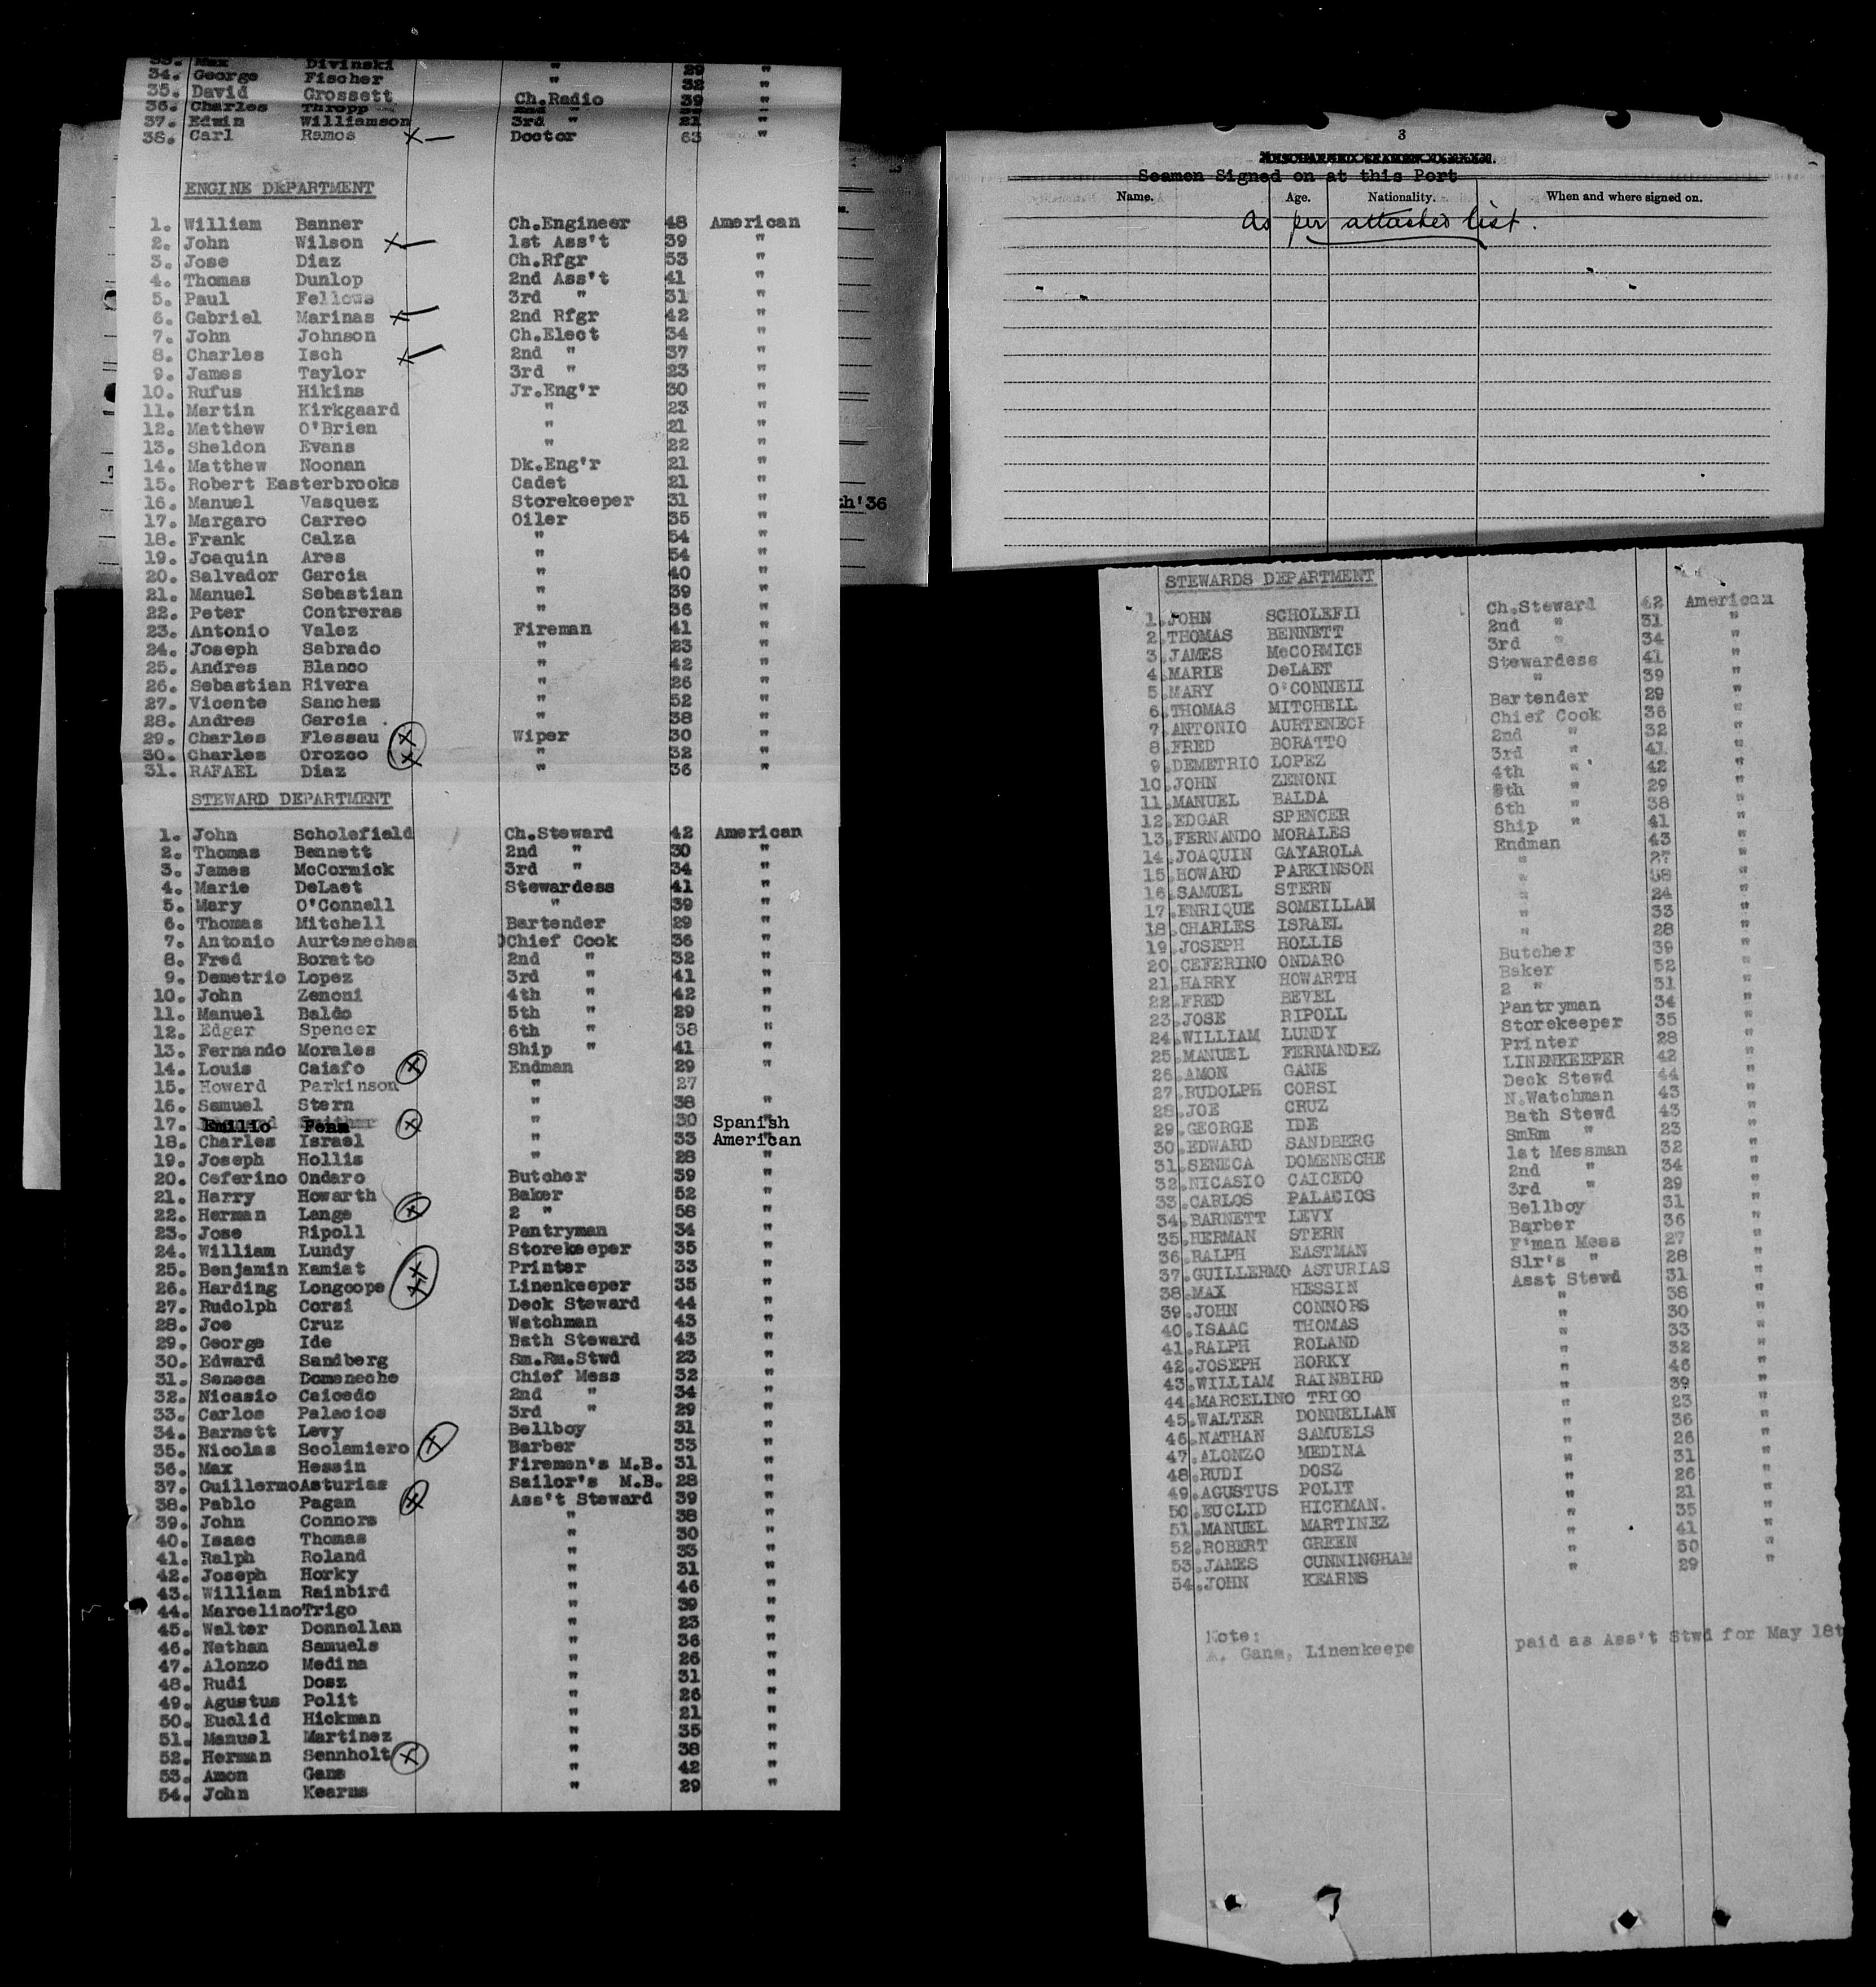 33. Max Divinski " 29 "
34. George Fischer " 32 "
35. David Grossett Ch.Radio 39 "
36. Charles Thropp 2nd " "
37. Edwin Williamson 3rd " 21 "
38. Carl Ramos X — Doctor 63 "
ENGINE DEPARTMENT
1. William Banner Ch.Engineer 48 American
2. John Wilson X — 1st Ass't 39 "
3. Jose Diaz Ch.Rfgr 53 "
4. Thomas Dunlop 2nd Ass't 41 "
5. Paul Fellows 3rd " 31 "
6. Gabriel Marinas X — 2nd Rfgr 42 "
7. John Johnson Ch.Elect 34 "
8. Charles Isch X — 2nd " 37 "
9. James Taylor 3rd " 23 "
10. Rufus Hikins Jr.Eng'r 30 "
11. Martin Kirkgaard " 23 "
12. Matthew O'Brien " 21 "
13. Sheldon Evans " 22 "
14. Matthew Noonan Dk.Eng'r 21 "
15. Robert Easterbrooks Cadet 21 "
16. Manuel Vasquez Storekeeper 31 "
17. Margaro Carreo Oiler 35 "
18. Frank Calza " 54 "
19. Joaquin Ares " 54 "
20. Salvador Garcia " 40 "
21. Manuel Sebastian " 39 "
22. Peter Contreras " 36 "
23. Antonio Valez Fireman 41 "
24. Joseph Sabrado " 23 "
25. Andres Blanco " 42 "
26. Sebastian Rivera " 26 "
27. Vicente Sanches " 52 "
28. Andres Garcia . " 38 "
29. Charles Flessau X Wiper 30 "
30. Charles Orozco X " 32 "
31. RAFAEL Diaz " 36 "
STEWARD DEPARTMENT
1. John Scholefield Ch.Steward 42 American
2. Thomas Bennett 2nd " 30 "
3. James McCormick 3rd " 34 "
4. Marie DeLaet Stewardess 41 "
5. Mary O'Connell " 39 "
6. Thomas Mitchell Bartender 29 "
7. Antonio Aurteneches Chief Cook 36 "
8. Fred Boratto 2nd " 32 "
9. Demetrio Lopez 3rd " 41 "
10. John Zenoni 4th " 42 "
11. Manuel Baldo 5th " 29 "
12. Edgar Spencer 6th " 38 "
13. Fernando Morales Ship " 41 "
14. Louis Caiafo X Endman 29 "
15. Howard Parkinson " 27
16. Samuel Stern " 38 "
17. Emilio Pena X " 30 Spanish
18. Charles Israel " 33 American
19. Joseph Hollis " 28 "
20. Ceferino Ondaro Butcher 39 "
21. Harry Howarth Baker 52 "
22. Herman Lange X 2 " 58 "
23. Jose Ripoll Pantryman 34 "
24. William Lundy Storekeeper 35 "
25. Benjamin Kamiat X Printer 33 "
26. Harding Longcope X Linenkeeper 35 "
27. Rudolph Corsi Deck Steward 44 "
28. Joe Cruz Watchman 43 "
29. George Ide Bath Steward 43 "
30. Edward Sandberg Sm.Rm.Stwd 23 "
31. Seneca Domeneche Chief Mess 32 "
32. Nicasio Caicedo 2nd " 34 "
33. Carlos Palacios 3rd " 29 "
34. Barnett Levy Bellboy 31 "
35. Nicolas Scolamiero X Barber 33 "
36. Max Hessin Firemen's M.B. 31 "
37. Guillermo Asturias Sailor's M.B. 28 "
38. Pablo Pagan X Ass't Steward 39 "
39. John Connors " 38 "
40. Isaac Thomas " 30 "
41. Ralph Roland " 33 "
42. Joseph Horky " 31 "
43. William Rainbird " 46 "
44. Marcelino Trigo " 39 "
45. Walter Donnellan " 23 "
46. Nathan Samuels " 36 "
47. Alonzo Medina " 26 "
48. Rudi Dosz " 31 "
49. Agustus Polit " 26 "
50. Euclid Hickman " 21 "
51. Manuel Martinez " 35 "
52. Herman Sennholt X " 38 "
53. Amon Gans " 42 "
54. John Kearns " 29 "
th'36
3
Seamen Signed on at this Port
Name. Age. Nationality. When and where signed on.
As per attached list.
STEWARDS DEPARTMENT
1. JOHN SCHOLEFII Ch.Steward 42 American
2. THOMAS BENNETT 2nd " 31 "
3. JAMES McCORMICK 3rd " 34 "
4. MARIE DeLAET Stewardess 41 "
5. MARY O'CONNELL " 39 "
6. THOMAS MITCHELL Bartender 29 "
7. ANTONIO AURTENECH Chief Cook 36 "
8. FRED BORATTO 2nd " 32 "
9. DEMETRIO LOPEZ 3rd " 41 "
10. JOHN ZENONI 4th " 42 "
11. MANUEL BALDA 5th " 29 "
12. EDGAR SPENCER 6th " 38 "
13. FERNANDO MORALES Ship " 41 "
14. JOAQUIN GAYAROLA Endman 43 "
15. HOWARD PARKINSON " 27 "
16. SAMUEL STERN " 38 "
17. ENRIQUE SOMEILLAN " 24 "
18. CHARLES ISRAEL " 33 "
19. JOSEPH HOLLIS " 28 "
20. CEFERINO ONDARO Butcher 39 "
21. HARRY HOWARTH Baker 52 "
22. FRED BEVEL 2 " 31 "
23. JOSE RIPOLL Pantryman 34 "
24. WILLIAM LUNDY Storekeeper 35 "
25. MANUEL FERNANDEZ Printer 28 "
26. AMON GANE LINENKEEPER 42 "
27. RUDOLPH CORSI Deck Stewd 44 "
28. JOE CRUZ N.Watchman 43 "
29. GEORGE IDE Bath Stewd 43 "
30. EDWARD SANDBERG SmRm " 23 "
31. SENECA DOMENECHE 1st Messman 32 "
32. NICASIO CAICEDO 2nd " 34 "
33. CARLOS PALACIOS 3rd " 29 "
34. BARNETT LEVY Bellboy 31 "
35. HERMAN STERN Barber 36 "
36. RALPH EASTMAN F'man Mess 27 "
37. GUILLERMO ASTURIAS Slr's " 28 "
38. MAX HESSIN Asst Stewd 31 "
39. JOHN CONNORS " 38 "
40. ISAAC THOMAS " 30 "
41. RALPH ROLAND " 33 "
42. JOSEPH HORKY " 32 "
43. WILLIAM RAINBIRD " 46 "
44. MARCELINO TRIGO " 39 "
45. WALTER DONNELLAN " 23 "
46. NATHAN SAMUELS " 36 "
47. ALONZO MEDINA " 26 "
48. RUDI DOSZ " 31 "
49. AGUSTUS POLIT " 26 "
50. EUCLID HICKMAN. " 21 "
51. MANUEL MARTINEZ " 35 "
52. ROBERT GREEN " 41 "
53. JAMES CUNNINGHAM " 30 "
54. JOHN KEARNS " 29 "
Note:
A. Gans, Linenkeepe paid as Ass't Stwd for May 18t